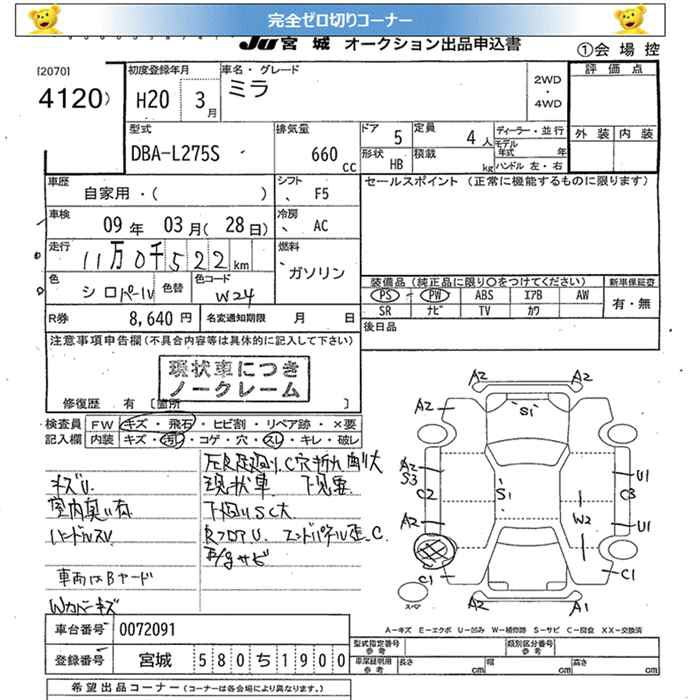 完全ゼロ切りコーナー
JU 宮城 オークション出品申込書
①会場控
[2070]
4120)
初度登録年月
H20 3月
車名・グレード
ミラ
2WD
・
4WD
評価点
外装 内装
型式
DBA-L275S
排気量
660 cc
ドア 5
定員 4人
形状 HB
積載 kg
ディーラー・並行
モデル年式 年
ハンドル 左・右
車歴
自家用・( )
シフト
F5
セールスポイント (正常に機能するものに限ります)
車検
09年 03月(28日)
冷房
AC
走行
11万0千522km
燃料
ガソリン
色
シロパール
色替
色コード
W24
装備品(純正品に限り○をつけてください)
新車保証書
PS PW ABS エアB AW
SR ナビ TV カワ
有・無
R券 8,640円
名変通知期限 月 日
後日品
注意事項申告欄(不具合内容等は具体的に記入して下さい)
現状車につき
ノークレーム
修復歴 有 〔箇所 〕
検査員
記入欄
FW キズ・飛石・ヒビ割・リペア跡・×要
内装 キズ・汚レ・コゲ・穴・スレ・キレ・破レ
キズU.
室内臭い有
ハンドルスレ
車両はBヤード
Wカバーキズ
現状車 下見要
下廻りSC大
RフロアU. エンドパネル歪.C
サビ
A2 A2
A2 S1 A2
A2
S3
C2 S1 U1
C3
A2 W2 U1
C1 C1
スペア A2 A1
A－キズ E－エクボ U－凹み W－補修跡 S－サビ C－腐食 XX－交換済
車台番号 0072091
登録番号 宮城 580ち1900
型式指定番号 参考
類別区分番号 参考
車庫証明用 参考 長さ cm 幅 cm 高さ cm
希望出品コーナー (コーナーは各会場により異なります。)